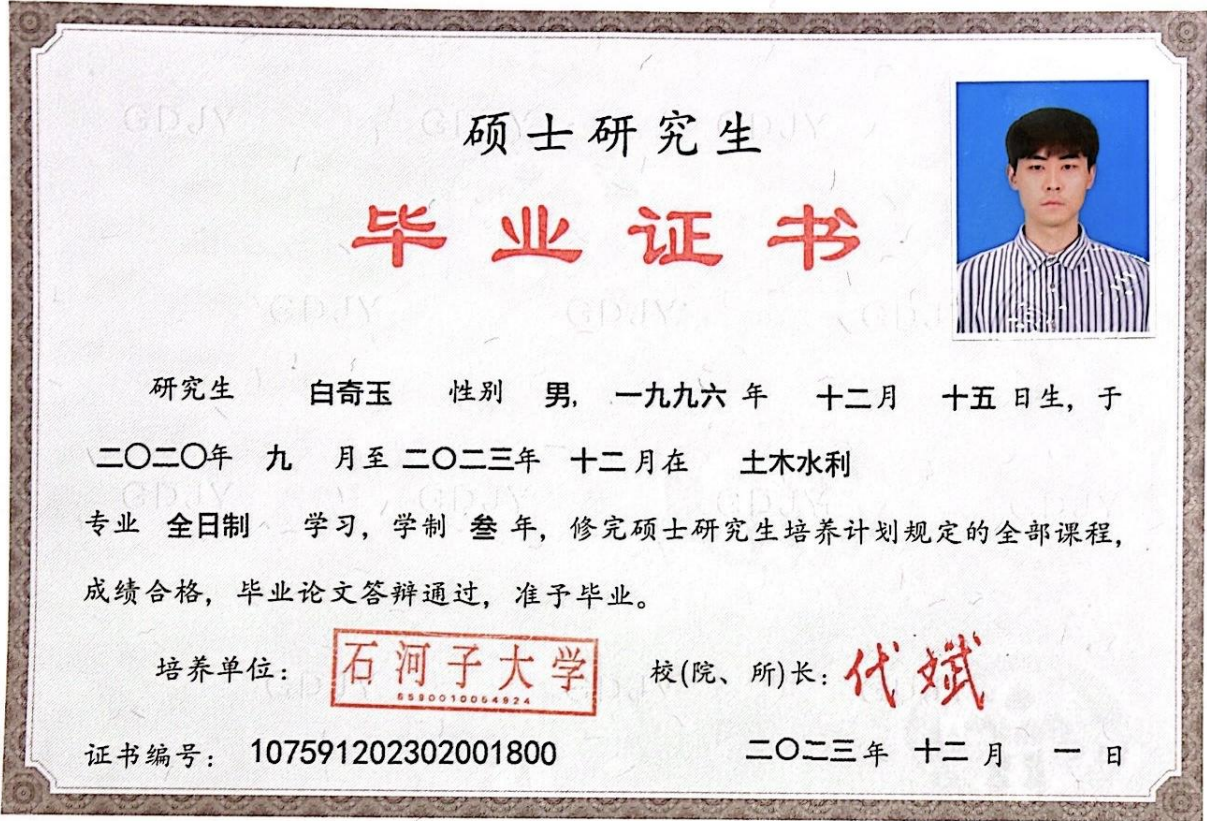 硕士研究生
毕业证书
研究生 白奇玉 性别 男, 一九九六 年 十二月 十五 日生, 于
二〇二〇年 九 月至 二〇二三年 十二 月在 土木水利
专业 全日制 学习, 学制 叁 年, 修完硕士研究生培养计划规定的全部课程,
成绩合格, 毕业论文答辩通过, 准予毕业。
培养单位: 石河子大学 校(院、所)长: 代斌
证书编号: 107591202302001800 二〇二三年 十二 月 一 日